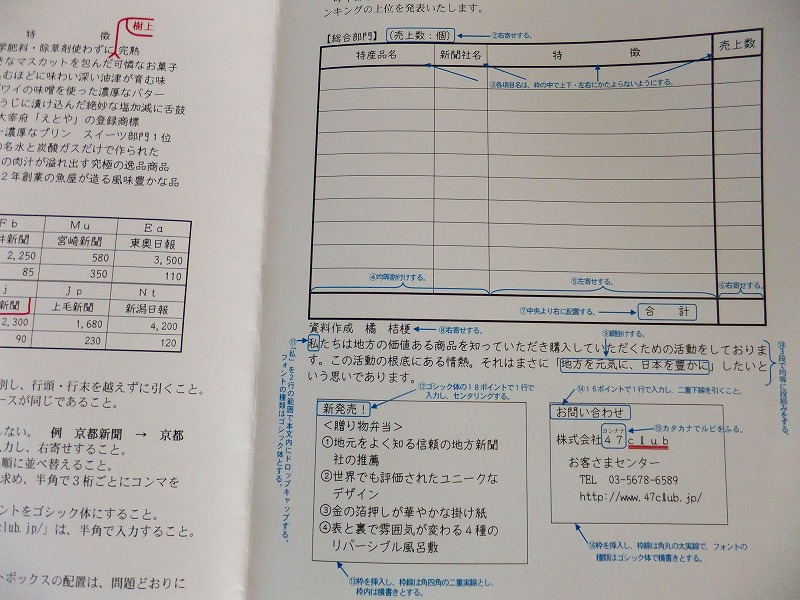 特　徴
樹上
学肥料・除草剤使わずに完熟
きなマスカットを包んだ可憐なお菓子
むほどに味わい深い油津が育む味
ワイの味噌を使った濃厚なバター
うじに漬け込んだ絶妙な塩加減に舌鼓
大宰府「えとや」の登録商標
濃厚なプリン　スイーツ部門１位
名水と炭酸ガスだけで作られた
の肉汁が溢れ出す究極の逸品商品
２年創業の魚屋が造る風味豊かな品
Ｆｂ　Ｍｕ　Ｅａ
井新聞　宮崎新聞　東奥日報
2,250　580　3,500
85　350　110
ｊ　Ｊｐ　Ｎｔ
新聞　上毛新聞　新潟日報
2,300　1,680　4,200
90　230　120
別し、行頭・行末を越えずに引くこと。
ースが同じであること。
しない。　例　京都新聞　→　京都
入力し、右寄せすること。
順に並べ替えること。
求め、半角で３桁ごとにコンマを
ォントをゴシック体にすること。
club.jp/」は、半角で入力すること。
トボックスの配置は、問題どおりに
ンキングの上位を発表いたします。
【総合部門】（売上数：個）
②右寄せする。
特産品名　新聞社名　特　徴　売上数
③各項目名は、枠の中で上下・左右にかたよらないようにする。
④均等割付けする。
⑤左寄せする。
⑥右寄せする。
⑦中央より右に配置する。
合　計
資料作成　橘　桔梗
⑧右寄せする。
⑨網掛けする。
私たちは地方の価値ある商品を知っていただき購入していただくための活動をしております。この活動の根底にある情熱。それはまさに「地方を元気に、日本を豊かに」したいという思いであります。
⑩２段で均等に段組みをする。
⑪「私」を２行の範囲で本文内にドロップキャップする、フォントの種類はゴシック体とする。
⑫ゴシック体の１８ポイントで１行で
入力し、センタリングする。
新発売！
＜贈り物弁当＞
①地元をよく知る信頼の地方新聞
社の推薦
②世界でも評価されたユニークな
デザイン
③金の箔押しが華やかな掛け紙
④表と裏で雰囲気が変わる４種の
リバーシブル風呂敷
⑬枠を挿入し、枠線は角四角の二重実線とし、
枠内は横書きとする。
⑭１６ポイントで１行で入力し、二重下線を引くこと。
お問い合わせ
⑮カタカナでルビをふる。
ヨンナナ
株式会社４７ｃｌｕｂ
お客さまセンター
TEL　03-5678-6589
http://www.47club.jp/
⑯枠を挿入し、枠線は角丸の太実線で、フォントの
種類はゴシック体で横書きとする。